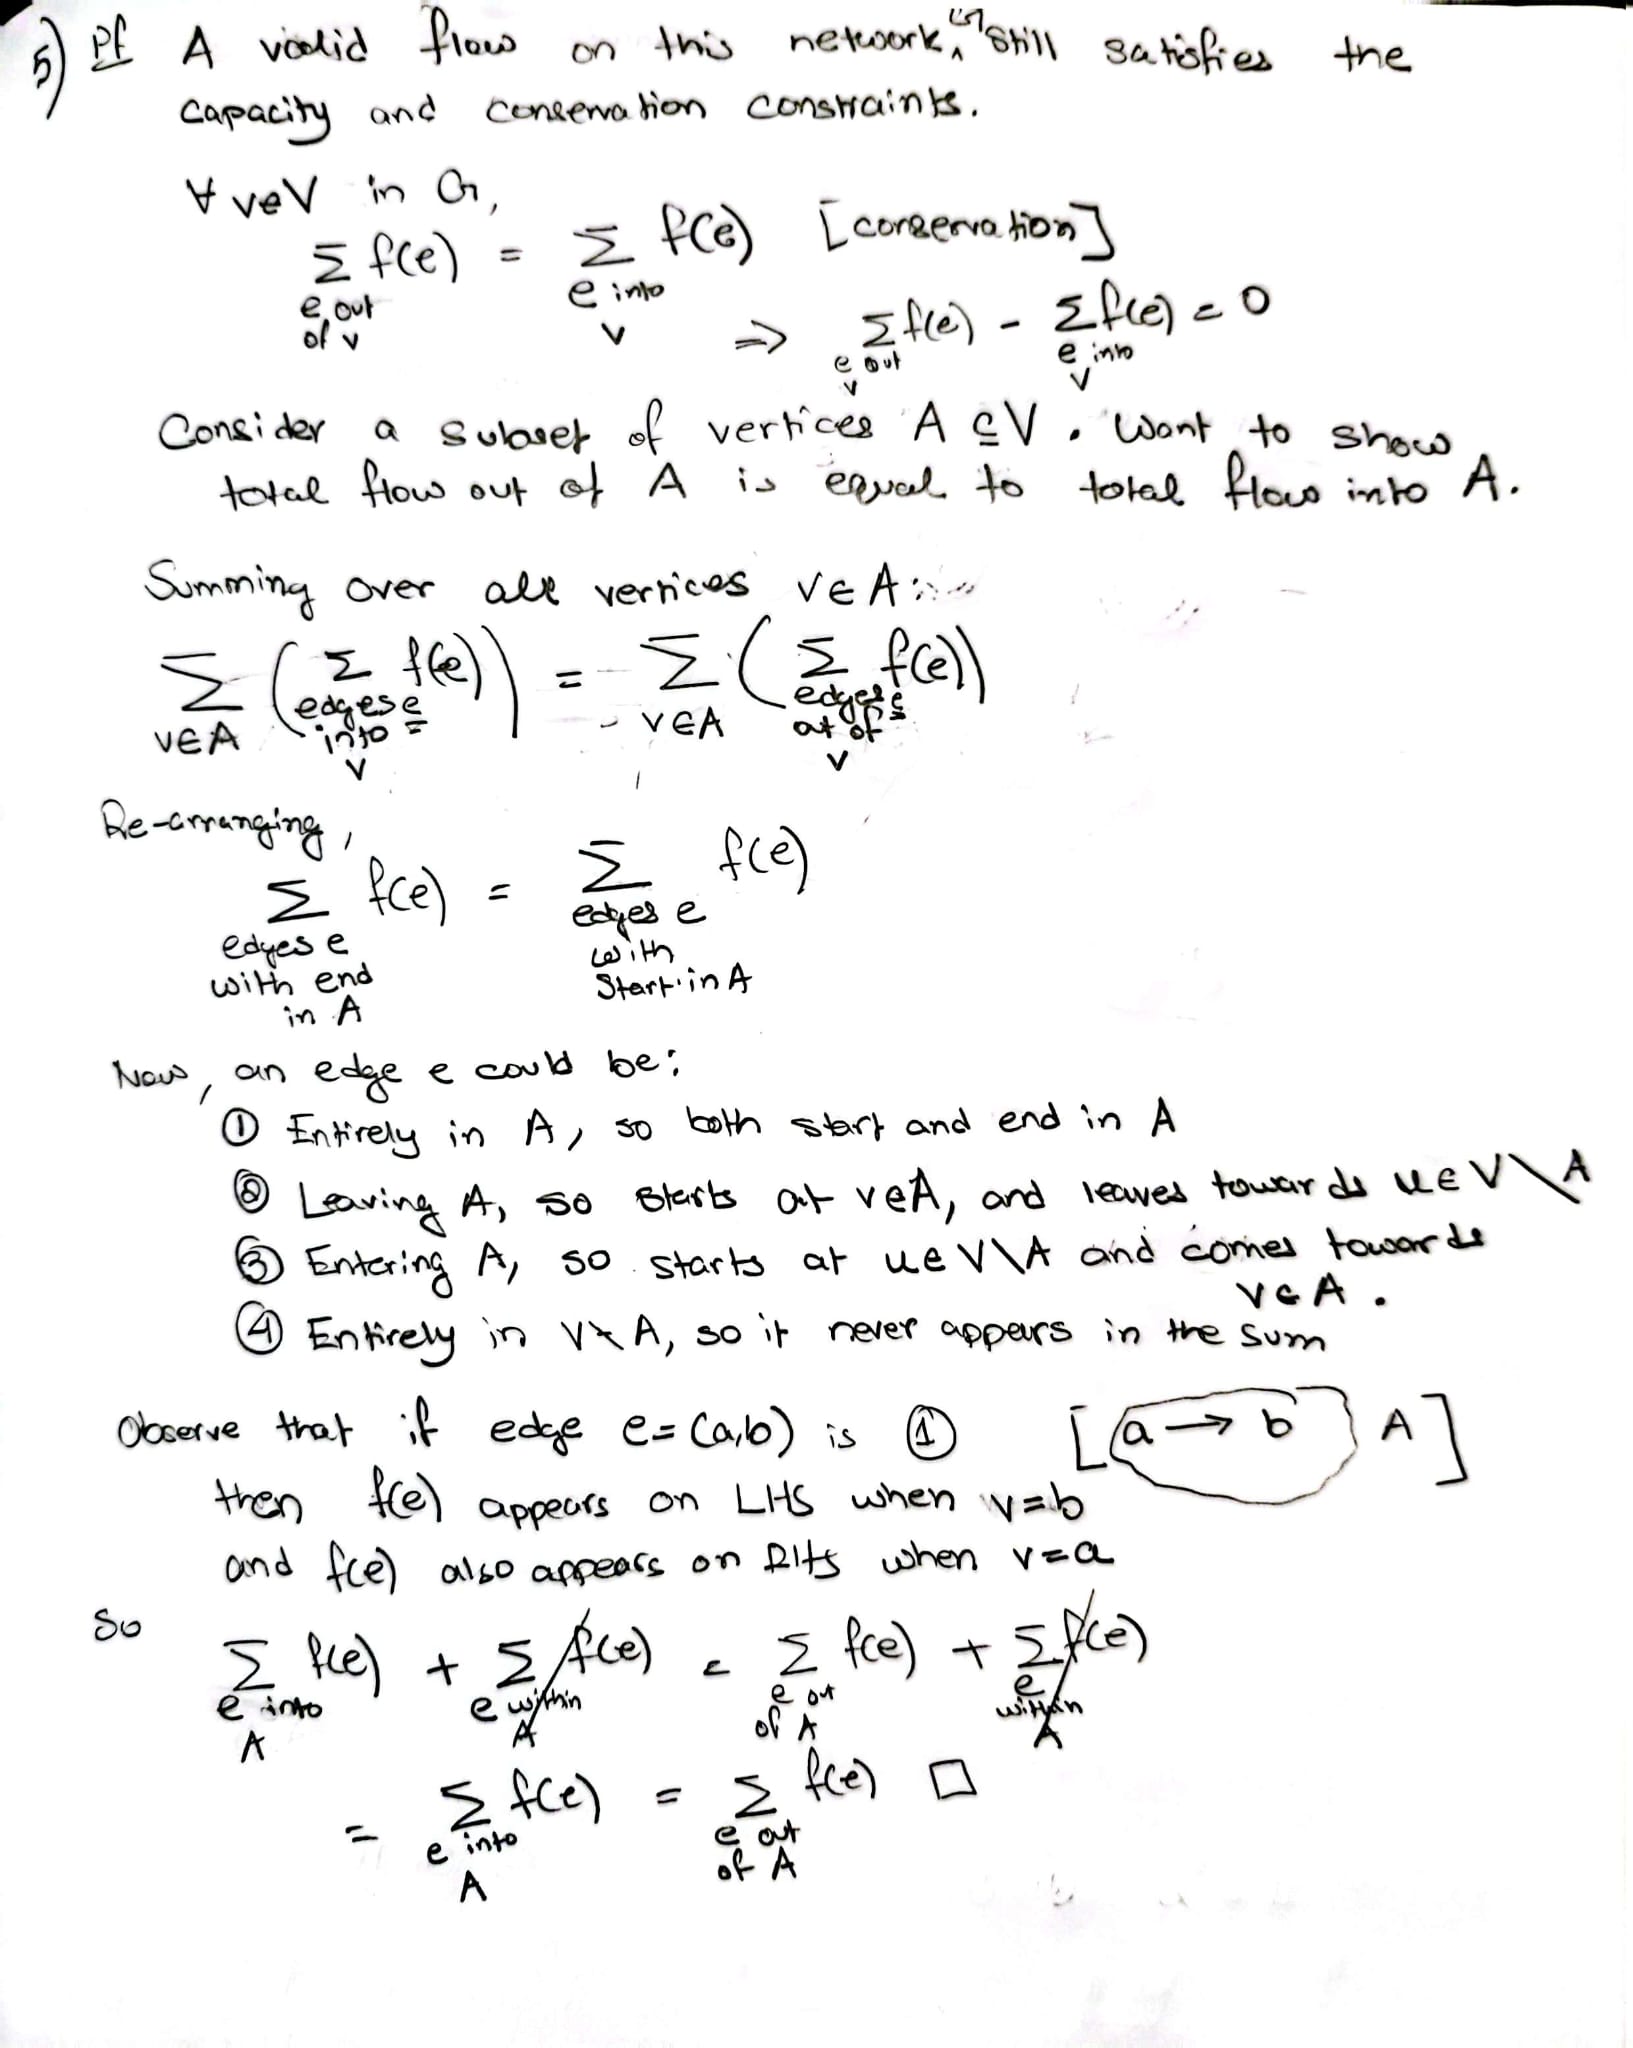 5) Pf A valid flow on this network, G, still satisfies the
capacity and conservation constraints.
∀ v∈V in G,
Σ f(e) = Σ f(e) [conservation]
e out of v e into v
⇒ Σ f(e) - Σ f(e) = 0
e out v e into v
Consider a subset of vertices A ⊆ V. Want to show
total flow out of A is equal to total flow into A.
Summing over all vertices v∈A:
Σ ( Σ f(e) ) = Σ ( Σ f(e) )
v∈A edges e into v v∈A edges e out of v
Re-arranging,
Σ f(e) = Σ f(e)
edges e with end in A edges e with start in A
Now, an edge e could be:
① Entirely in A, so both start and end in A
② Leaving A, so starts at v∈A, and leaves towards u∈V\A
③ Entering A, so starts at u∈V\A and comes towards
v∈A.
④ Entirely in V\A, so it never appears in the sum
Observe that if edge e=(a,b) is ① [a → b A]
then f(e) appears on LHS when v=b
and f(e) also appears on RHS when v=a
So Σ f(e) + Σ f(e) = Σ f(e) + Σ f(e)
e into A e within A e out of A e within A
= Σ f(e) = Σ f(e) □
e into A e out of A